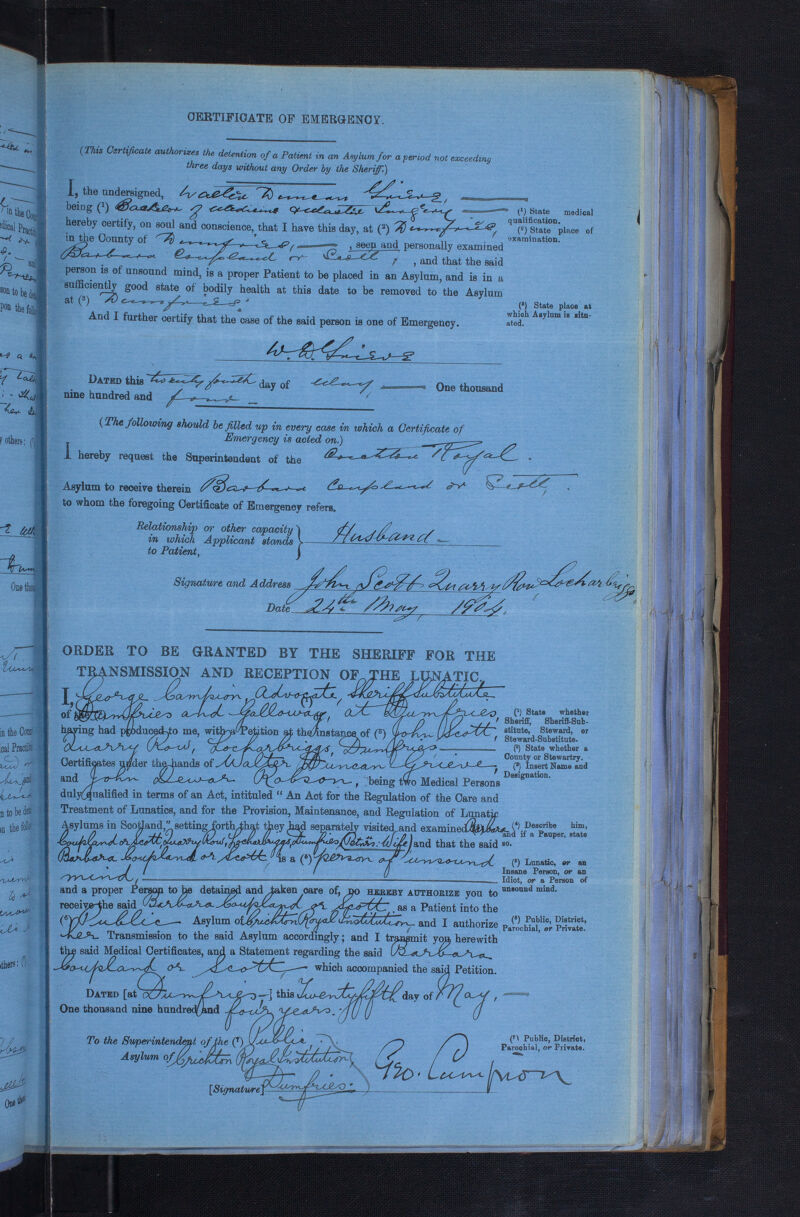 CERTIFICATE OF EMERGENCY.
(This Certificate authorizes the detention of a Patient in an Asylum for a period not exceeding
three days without any Order by the Sheriff.)
I, the undersigned, Walter Duncan Grieve,
being (¹) Bachelor of Medicine & Master Surgery
hereby certify, on soul and conscience, that I have this day, at (²) Dumfries,
in the County of Dumfries, , seen and personally examined
Barbara Coupland or Scott , and that the said
person is of unsound mind, is a proper Patient to be placed in an Asylum, and is in a
sufficiently good state of bodily health at this date to be removed to the Asylum
at (³) Dumfries.
And I further certify that the case of the said person is one of Emergency.
(¹) State medical
qualification.
(²) State place of
examination.
(³) State place at
which Asylum is situ-
ated.
W. D. Grieve
DATED this twenty fourth day of May One thousand
nine hundred and four
(The following should be filled up in every case in which a Certificate of
Emergency is acted on.)
I hereby request the Superintendent of the Crichton Royal.
Asylum to receive therein Barbara Coupland or Scott,
to whom the foregoing Certificate of Emergency refers.
Relationship or other capacity
in which Applicant stands
to Patient,
Husband
Signature and Address John Scott Quarry Row Locharbriggs
Date 24th May, 1904.
ORDER TO BE GRANTED BY THE SHERIFF FOR THE
TRANSMISSION AND RECEPTION OF THE LUNATIC.
I, George Campion, Advocate, Sheriff Substitute
of Dumfries and Galloway, at Dumfries,
having had produced to me, with a Petition at the instance of (³) John Scott,
Quarry Row, Locharbriggs, Dumfries
Certificates under the hands of Walter Duncan Grieve,
and John Dewar Robson, being two Medical Persons
duly qualified in terms of an Act, intituled "An Act for the Regulation of the Care and
Treatment of Lunatics, and for the Provision, Maintenance, and Regulation of Lunatic
Asylums in Scotland," setting forth that they had separately visited and examined Barbara
Coupland or Scott, Quarry Row, Locharbriggs, Dumfries (Petnrs. Wife) and that the said
Barbara Coupland or Scott is a (⁵) person of unsound
mind,
and a proper Person to be detained and taken care of, DO HEREBY AUTHORIZE you to
receive the said Barbara Coupland or Scott as a Patient into the
(⁶) Public Asylum of Crichton Royal Institution, and I authorize
her Transmission to the said Asylum accordingly; and I transmit you herewith
the said Medical Certificates, and a Statement regarding the said Barbara
Coupland or Scott which accompanied the said Petition.
(¹) State whether
Sheriff, Sheriff-Sub-
stitute, Steward, or
Steward-Substitute.
(²) State whether a
County or Stewartry.
(³) Insert Name and
Designation.
(⁴) Describe him,
and if a Pauper, state
so.
(⁵) Lunatic, or an
Insane Person, or an
Idiot, or a Person of
unsound mind.
(⁶) Public, District,
Parochial, or Private.
DATED [at Dumfries] this twenty fifth day of May,
One thousand nine hundred and four years.
To the Superintendent of the (⁷) Public
Asylum of Crichton Royal Institution,
Dumfries.
(⁷) Public, District,
Parochial, or Private.
[Signature] Geo. Campion